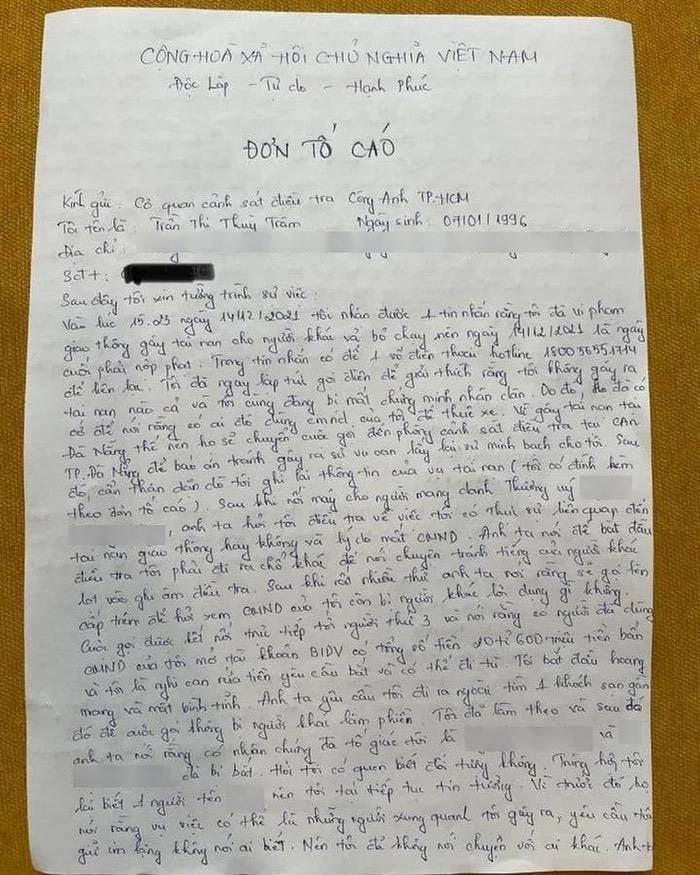 CỘNG HOÀ XÃ HỘI CHỦ NGHĨA VIỆT NAM
Độc Lập - Tự do - Hạnh Phúc
ĐƠN TỐ CÁO
Kính gửi: Cơ quan cảnh sát điều tra Công Anh TP.HCM
Tôi tên là: Trần Thị Thuỳ Trâm Ngày sinh: 07/01/1996
Địa chỉ:
Sđt:
Sau đây tôi xin tường trình sự việc:
Vào lúc 15.23 ngày 14/12/2021 tôi nhận được 1 tin nhắn rằng tôi đã vi phạm
giao thông gây tai nạn cho người khác và bỏ chạy nên ngày 14/12/2021 là ngày
cuối phải nộp phạt. Trong tin nhắn có để 1 số điện thoại hotline 18005655
để liên lạc. Tôi đã ngay lập tức gọi điện để giải thích rằng tôi không gây ra
tai nạn nào cả và tôi cũng đang bị mất chứng minh nhân dân. Do đó, họ đã có
cớ để nói rằng có ai đó dùng cmnd của tôi để thuê xe. Vì gây tai nạn tại
Đà Nẵng thế nên họ sẽ chuyển cuộc gọi đến phòng cảnh sát điều tra tại CAN
TP.Đà Nẵng để báo án tránh gây ra sự vu oan lấy lại sự minh bạch cho tôi. Sau
đó, cẩn thận dặn dò tôi ghi lại thông tin của vụ tai nạn (tôi có đính kèm
theo đơn tố cáo). Sau khi nối máy cho người mang danh Thượng uý
, anh ta hỏi tôi điều tra về việc tôi có thực sự liên quan đến
tai nạn giao thông hay không và lý do mất CMND. Anh ta nói để bắt đầu
điều tra tôi phải đi ra chỗ khác để nói chuyện tránh tiếng của người khác
lọt vào ghi âm điều tra. Sau khi rất nhiều thứ anh ta nói rằng sẽ gọi lên
cấp trên để hỏi xem CMND của tôi còn bị người khác lợi dụng gì không.
Cuộc gọi được kết nối trực tiếp tới người thứ 3 và nói rằng có người đã dùng
CMND của tôi mở tài khoản BIDV có tổng số tiền 20 tỉ 600 triệu tiền bẩn
và tôi là nghi can rửa tiền yêu cầu bắt và có thể đi tù. Tôi bắt đầu hoang
mang và mất bình tĩnh. Anh ta yêu cầu tôi đi ra ngoài tìm 1 khách sạn gần
đó để cuộc gọi không bị người khác làm phiền. Tôi đã làm theo và sau đó
anh ta nói rằng có nhân chứng đã tố giác tôi là và
đã bị bắt. Hỏi tôi có quen biết đối tượng không. Trùng hợp tôi
lại biết 1 người tên nên tôi lại tiếp tục tin tưởng. Vì trước đó họ
nói rằng vụ việc có thể là những người xung quanh tôi gây ra, yêu cầu tôi
giữ im lặng không nói ai biết. Nên tôi đã không nói chuyện với ai khác. Anh